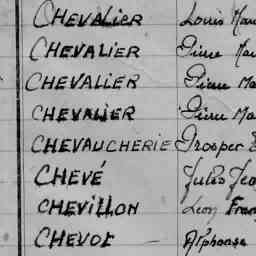 CHEVALIER Louis
CHEVALIER Pierre
CHEVALIER Pierre
CHEVALIER Pierre
CHEVAUCHERIE Prosper
CHEVÉ Jules
CHEVILLON Leon
CHEVOT Alphonse